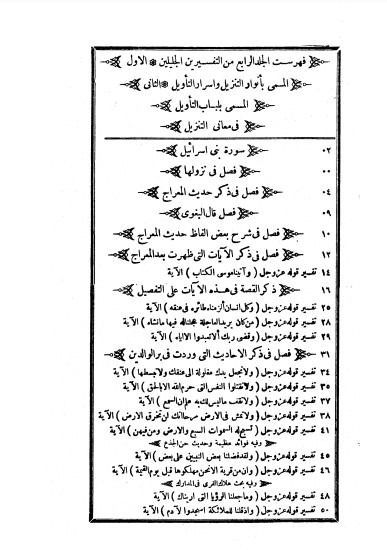 فهرست الجلد الرابع من التفسيرين الجليلين * الاول
المسمى بأنوار التنزيل واسرار التأويل * الثانى
المسمى بلباب التأويل
فى معانى التنزيل
٠٢ سورة بنى اسرائيل
٠٠ فصل فى نزولها
٠٤ فصل فى ذكر حديث المعراج
٠٩ فصل قال البغوى
١٠ فصل فى شرح بعض الفاظ حديث المعراج
١٢ فصل فى ذكر الآيات التى ظهرت بعد المعراج
١٤ تفسير قوله عز وجل ( وآتينا موسى الكتاب ) الآية
١٦ ذكر القصة فى هذه الآيات على التفصيل
٢٥ تفسير قوله عز وجل ( وكل انسان ألزمناه طائره فى عنقه ) الآية
٢٨ تفسير قوله عز وجل ( من كان يريد العاجلة عجلنا له فيها مانشاء ) الآية
٢٩ تفسير قوله عز وجل ( وقضى ربك ألا تعبدوا الا اياه ) الآية
٣١ فصل فى ذكر الاحاديث التى وردت فى بر الوالدين
٣٤ تفسير قوله عز وجل ( ولا تجعل يدك مغلولة الى عنقك ولا تبسطها ) الآية
٣٥ تفسير قوله عز وجل ( ولا تقتلوا النفس التى حرم الله الا بالحق ) الآية
٣٧ تفسير قوله عز وجل ( ولا تقف ماليس لك به علم ان السمع ) الآية
٣٨ تفسير قوله عز وجل ( ولا تمش فى الارض مرحا انك لن تخرق الارض ) الآية
٤١ تفسير قوله عز وجل ( تسبح له السموات السبع والارض ومن فيهن ) الآية
وفيه فوائد عظيمة وحديث حن الجذع
٤٥ تفسير قوله عز وجل ( ولقد فضلنا بعض النبيين على بعض ) الآية
٤٦ تفسير قوله عز وجل ( وان من قرية الا نحن مهلكوها قبل يوم القيمة ) الآية
وفيه بحث هلاك القرى فى المدارك
٤٨ تفسير قوله عز وجل ( وما جعلنا الرؤيا التى اريناك ) الآية
٥٠ تفسير قوله عز وجل ( واذ قلنا للملائكة اسجدوا لآدم ) الآية